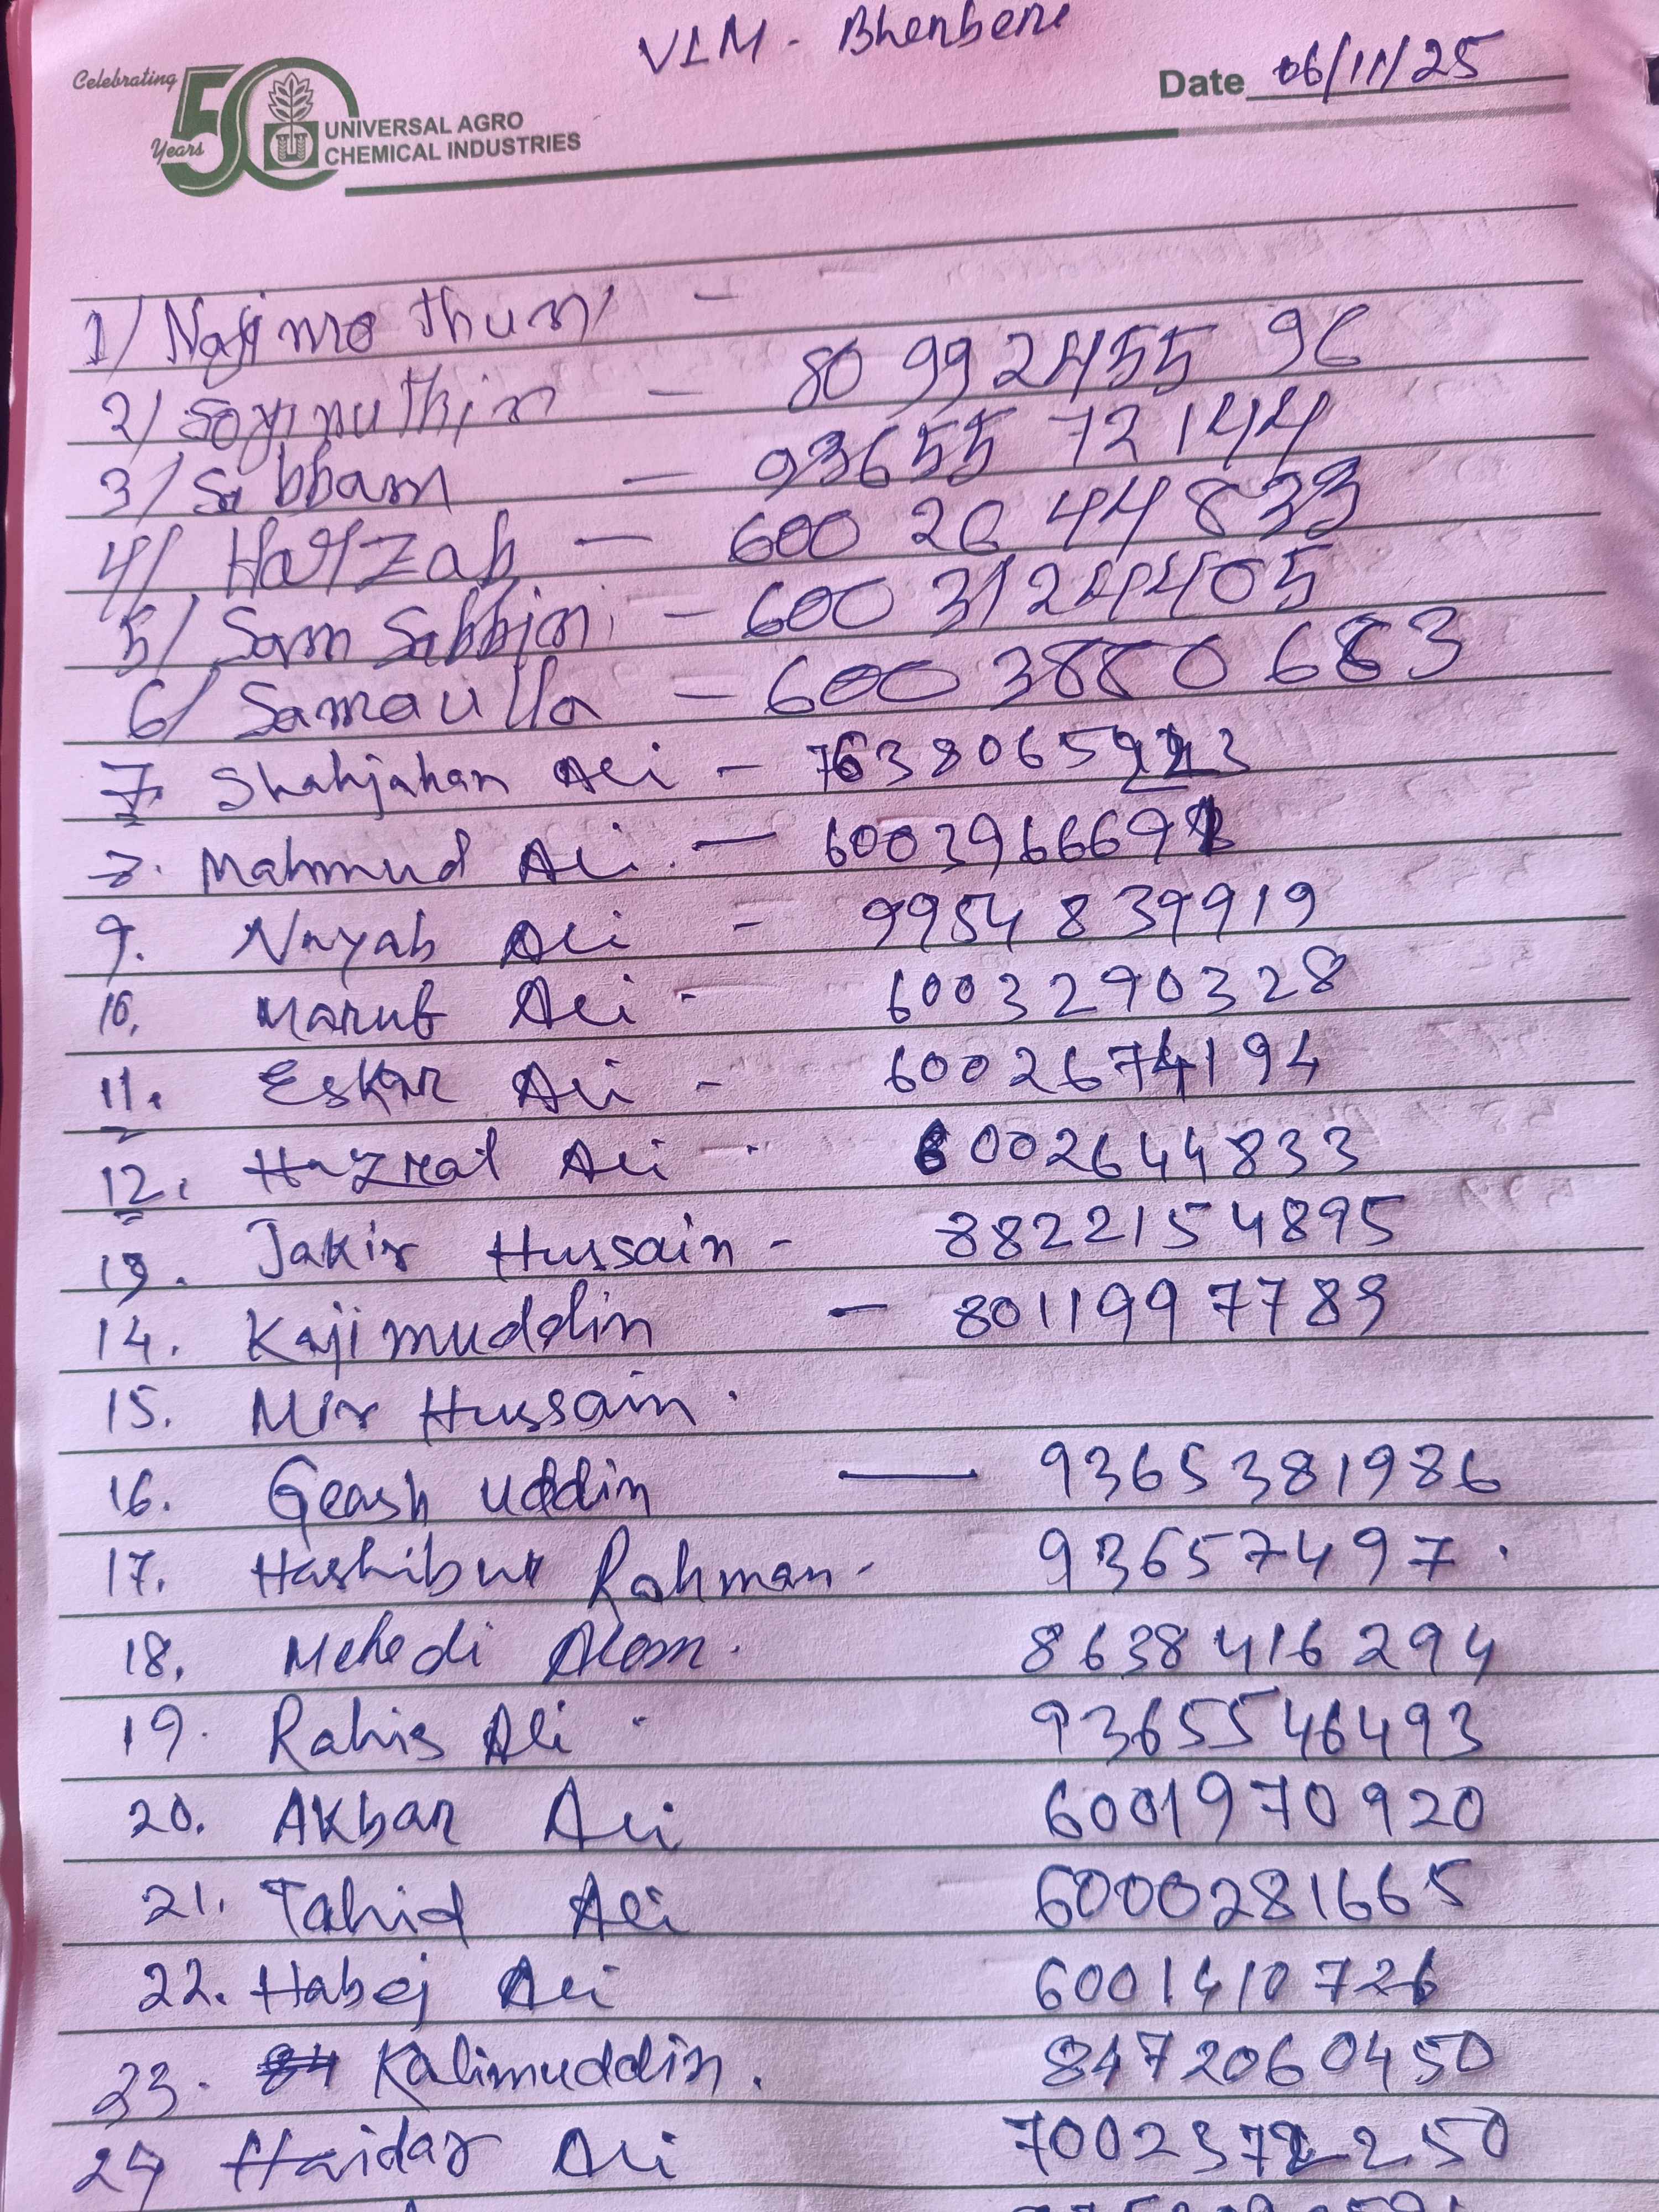 VLM - Bhenberi
Celebrating
50
Years
UNIVERSAL AGRO
CHEMICAL INDUSTRIES
Date 06/11/25
1/ Najimothum -
2/ - 80 992455 96
3/ Sabbam - 93655 72144
4/ - 600 26 44833
5/ Sam Sabbin - 600 3124405
6/ Samaulla - 600 3880 683
7. Shahjahan Ali - 7638065
8. Mahmud Ali - 600396669
9. Nayab Ali - 9954839919
10. Marub Ali - 6003290328
11. Eskar Ali - 6002674194
12. Hazrat Ali - 6002644833
13. Jakir Hussain - 8822154895
14. Kajimuddin - 8011997789
15. Mir Hussain.
16. Geash uddin — 9365381986
17. Hashibur Rahman - 93657497.
18. Mehedi Alom. 8638416294
19. Rahis Ali - 9365546493
20. Akbar Ali 6001970920
21. Tahid Ali 6000281665
22. Habej Ali 6001410726
23. Kalimuddin. 8472060450
24 Haidar Ali 70023 2250